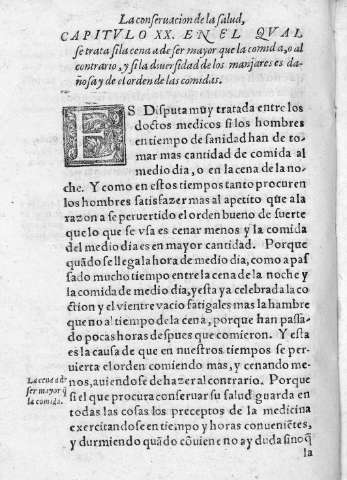 La conseruacion de la salud,
CAPITVLO XX. EN EL QVAL
se trata si la cena a de ser mayor que la comida, o al
contrario, y si la diuersidad de los manjares es da-
ñosa y de el orden de las comidas.
ES Disputa muy tratada entre los
doctos medicos si los hombres
en tiempo de sanidad han de to-
mar mas cantidad de comida al
medio dia, o en la cena de la no-
che. Y como en estos tiempos tanto procuren
los hombres satisfazer mas al apetito q̃ue a la
razon a se peruertido el orden bueno de suerte
que lo que se vsa es cenar menos y la comida
del medio dia es en mayor cantidad. Porque
quãdo se llega la hora de medio dia, como a pas
sado mucho tiempo entre la cena de la noche y
la comida de medio dia, y esta ya celebrada la co
ction y el vientre vacio fatigales mas la hambre
que no al tiempo de la cena, porque han passa-
do pocas horas despues que comieron. Y esta
es la causa de que en nuestros tiempos se per-
uierta el orden comiendo mas, y cenando me-
nos, auiendose de hazer al contrario. Porque
si el que procura conseruar su salud guarda en
todas las cosas los preceptos de la medicina
exercitandose en tiempo y horas conueniẽtes,
y durmiendo quãdo cõuiene no ay duda sino q̃
la
La cena a de
ser mayor q̃
la comida.